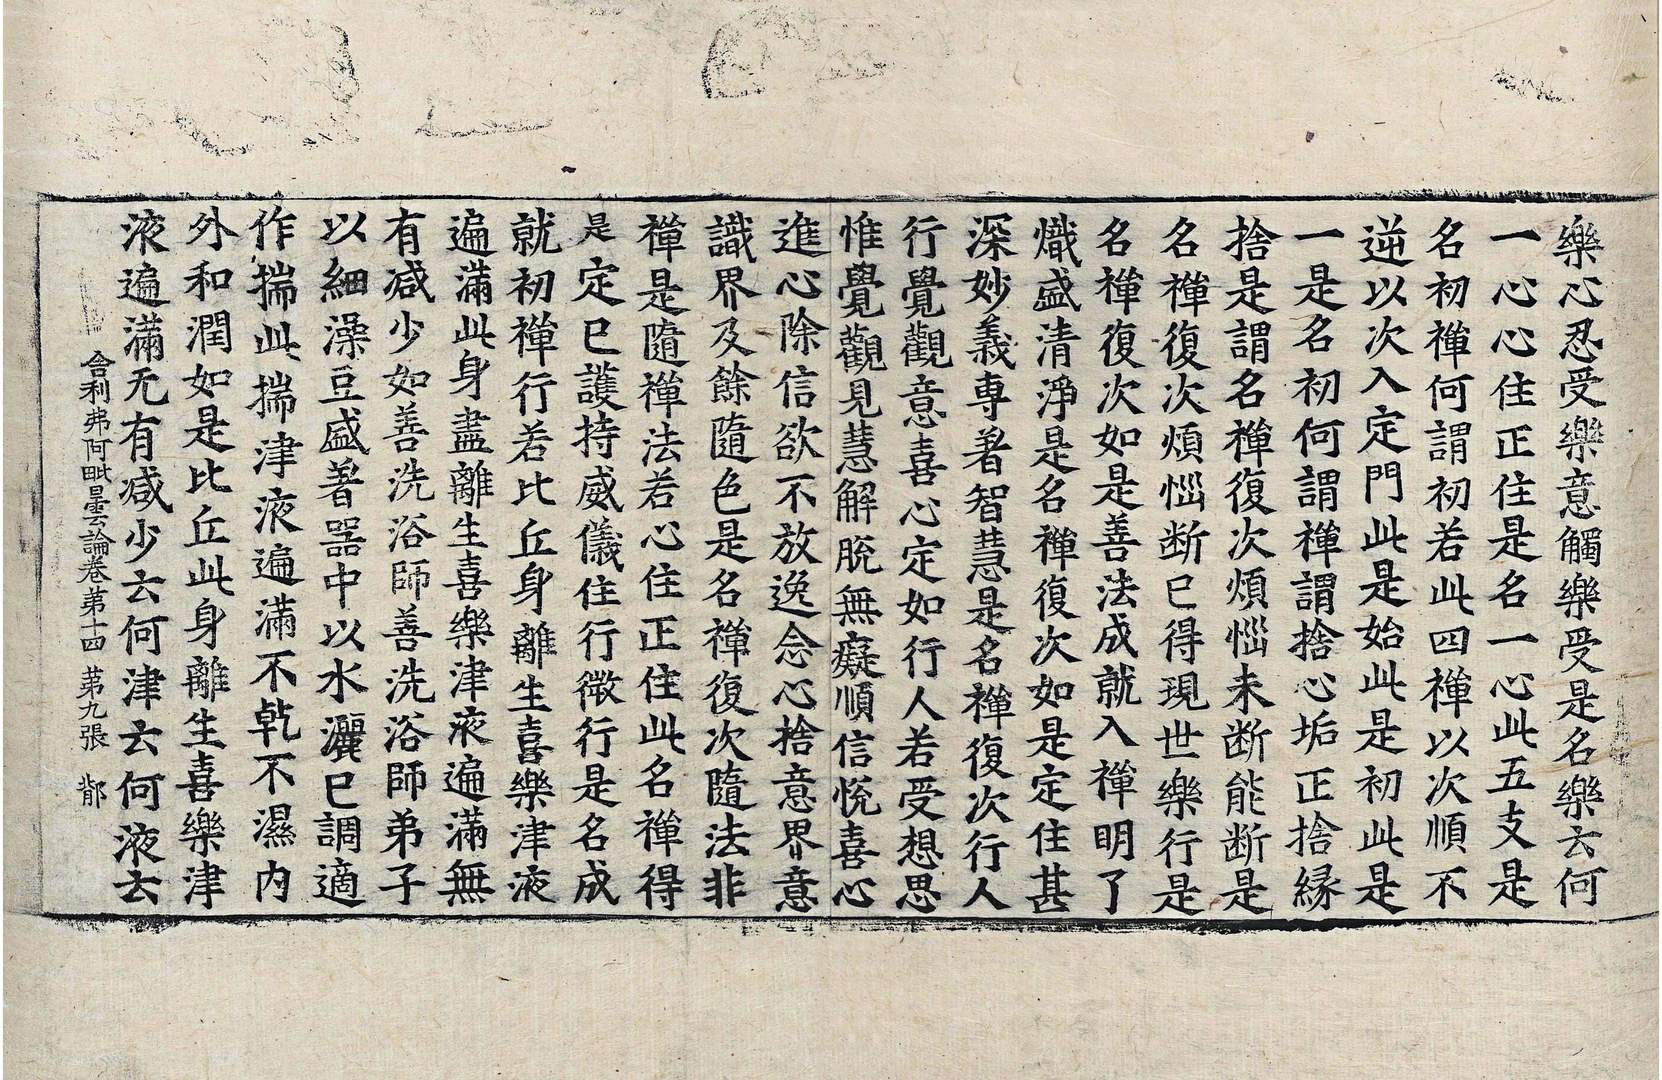 樂心忍受樂意觸樂受是名樂云何
一心心住正住是名一心此五支是
名初禅何謂初若此四禅以次順不
逆以次入定門此是始此是初此是
一是名初何謂禅謂捨心垢正捨縁
捨是謂名禅復次煩惱未断能断是
名禅復次煩惱断已得現世樂行是
名禅復次如是善法成就入禅明了
熾盛清淨是名禅復次如是定住甚
深妙義專著智慧是名禅復次行人
行覺觀意喜心定如行人若受想思
惟覺觀見慧解脫無癡順信悅喜心
進心除信欲不放逸念心捨意界意
識界及餘隨色是名禅復次隨法非
禅是隨禅法若心住正住此名禅得
是定已護持威儀住行微行是名成
就初禅行若比丘身離生喜樂津液
遍滿此身盡離生喜樂津液遍滿無
有減少如善洗浴師善洗浴師弟子
以細澡豆盛著器中以水灑已調適
作揣此揣津液遍滿不乹不濕内
外和潤如是比丘此身離生喜樂津
液遍滿无有減少云何津云何液云
舎利弗阿毗曇論卷第十四 第九張